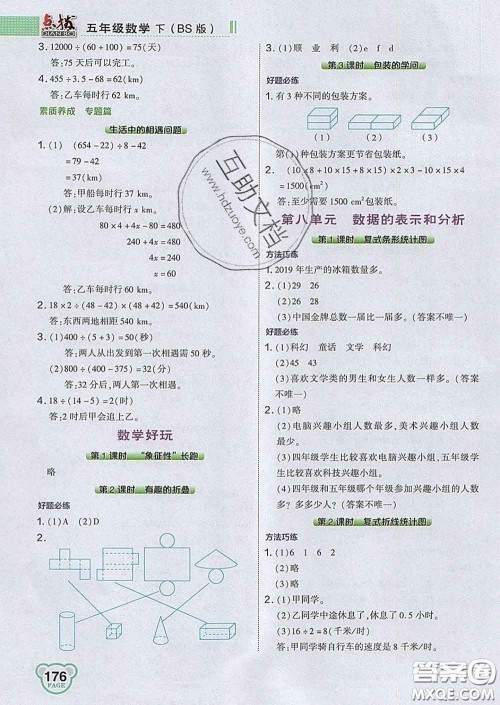 点拨
DIANBO
五年级数学 下（BS版）
3. 12000÷(60+100)=75(天)
答:75天后可以完工。
4. 455÷3.5-68=62(km)
答:乙车每时行62 km。
素质养成 专题篇
生活中的相遇问题
1. (1) (654-22)÷8-42
=79-42
=37(km)
答:甲船每时行37 km。
(2)解:设乙车每时行x km。
80×4+4x-80=480
240+4x=480
4x=240
x=60
答:乙车每时行60 km。
2. 18×2÷(48-42)×(48+42)=540(km)
答:东西两地相距540 km。
3. (1)400÷(5+3)=50(秒)
答:两人从出发到第一次相遇需50秒。
(2)800÷(400-375)=32(分)
答:32分后,两人第一次相遇。
4. 18÷(14-5)=2(时)
答:2时后甲会追上乙。
数学好玩
第1课时 “象征性”长跑
略
第2课时 有趣的折叠
好题必练
1. (1)A (2)D
2.
176
PAGE
3. (1)顺 业 利 (2)e f d
第3课时 包装的学问
好题必练
1. 有3种不同的包装方案。
(1) (2) (3)
第(1)种包装方案更节省包装纸。
2. (10×8+10×15+8×15)×2×3-10×15×4
=1500(cm²)
答:至少需要1500 cm²包装纸。
第八单元 数据的表示和分析
第1课时 复式条形统计图
方法巧练
1. 2019年生产的冰箱数量多。
2. (1)29 26
(2)31 28
(3)中国金牌总数一届比一届多。(答案不唯一)
好题必练
1. (1)科幻 童话 文学 科幻
(2)略
(3)喜欢文学类的男生和女生人数差不多。(答案
不唯一)
2. (1)略
(2)电脑兴趣小组人数最多,美术兴趣小组人数
最少。
(3)四年级学生比较喜欢电脑兴趣小组,五年级
学生比较喜欢科技兴趣小组。
(4)四年级和五年级哪个兴趣小组的总人数最
多?多多少人?(答案不唯一)略
第2课时 复式折线统计图
方法巧练
1. (1)6 1 6 2
(2)略
(3)略
好题必练
1. (1)甲同学。
(2)乙同学中途休息了,休息了0.5小时。
(3)16÷2=8(千米/时)
答:甲同学骑自行车的速度是8千米/时。
互助文档
www.hdzuoye.com
答案圈
MXQE.COM